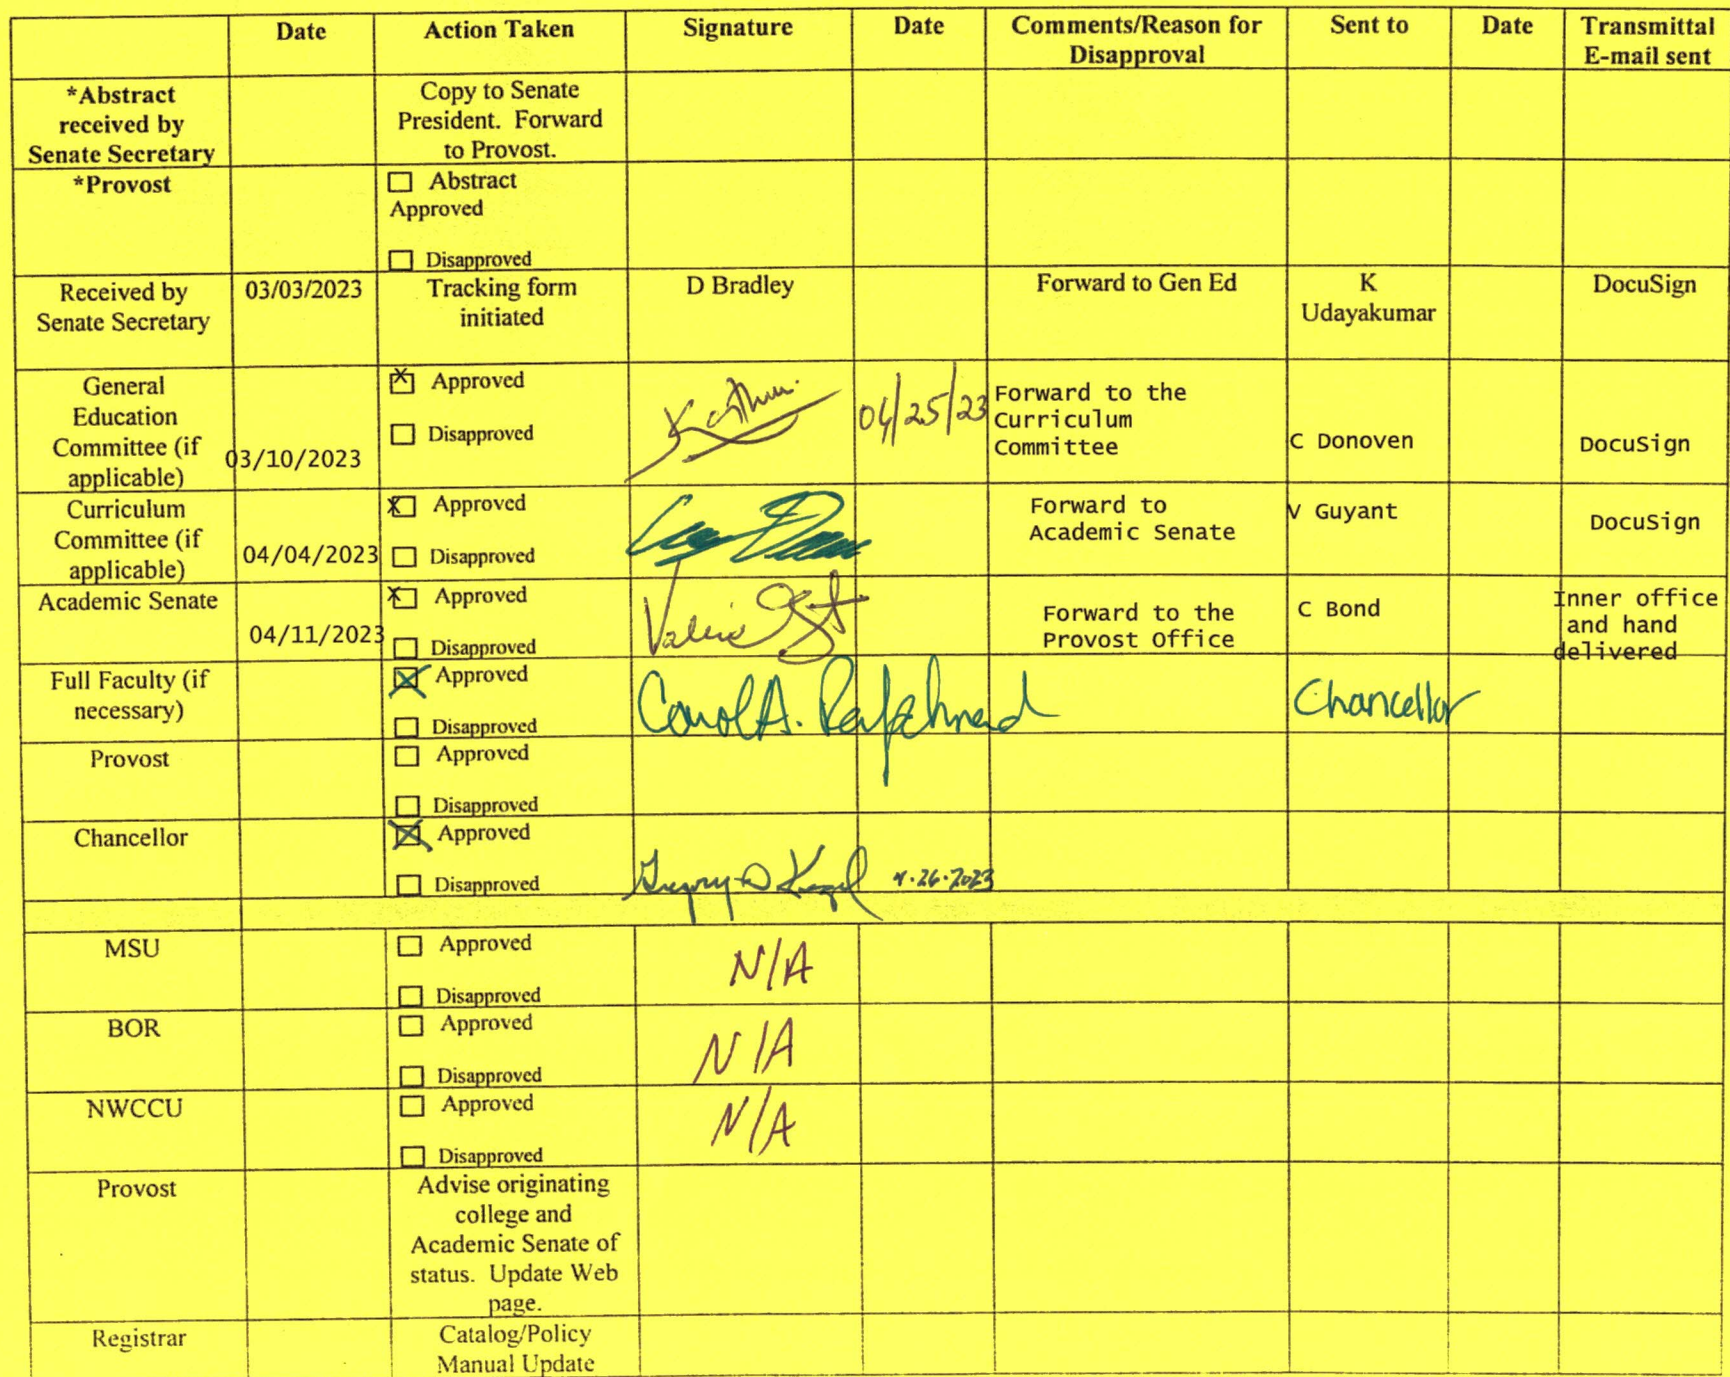 Date Action Taken Signature Date Comments/Reason for Sent to Date Transmittal
Disapproval E-mail sent
*Abstract
received by
Senate Secretary
Copy to Senate
President. Forward
to Provost.
*Provost
Abstract
Approved
Disapproved
Received by
Senate Secretary
03/03/2023
Tracking form
initiated
D Bradley
Forward to Gen Ed
K
Udayakumar
DocuSign
General
Education
Committee (if
applicable)
03/10/2023
x Approved
Disapproved
04/25/23
Forward to the
Curriculum
Committee
C Donoven
DocuSign
Curriculum
Committee (if
applicable)
04/04/2023
x Approved
Disapproved
Forward to
Academic Senate
V Guyant
DocuSign
Academic Senate
04/11/2023
x Approved
Disapproved
Forward to the
Provost Office
C Bond
Inner office
and hand
delivered
Full Faculty (if
necessary)
X Approved
Disapproved
Carol A.
Chancellor
Provost
Approved
Disapproved
Chancellor
X Approved
Disapproved
4.26.2023
MSU
Approved
Disapproved
N/A
BOR
Approved
Disapproved
N/A
NWCCU
Approved
Disapproved
N/A
Provost
Advise originating
college and
Academic Senate of
status. Update Web
page.
Registrar
Catalog/Policy
Manual Update